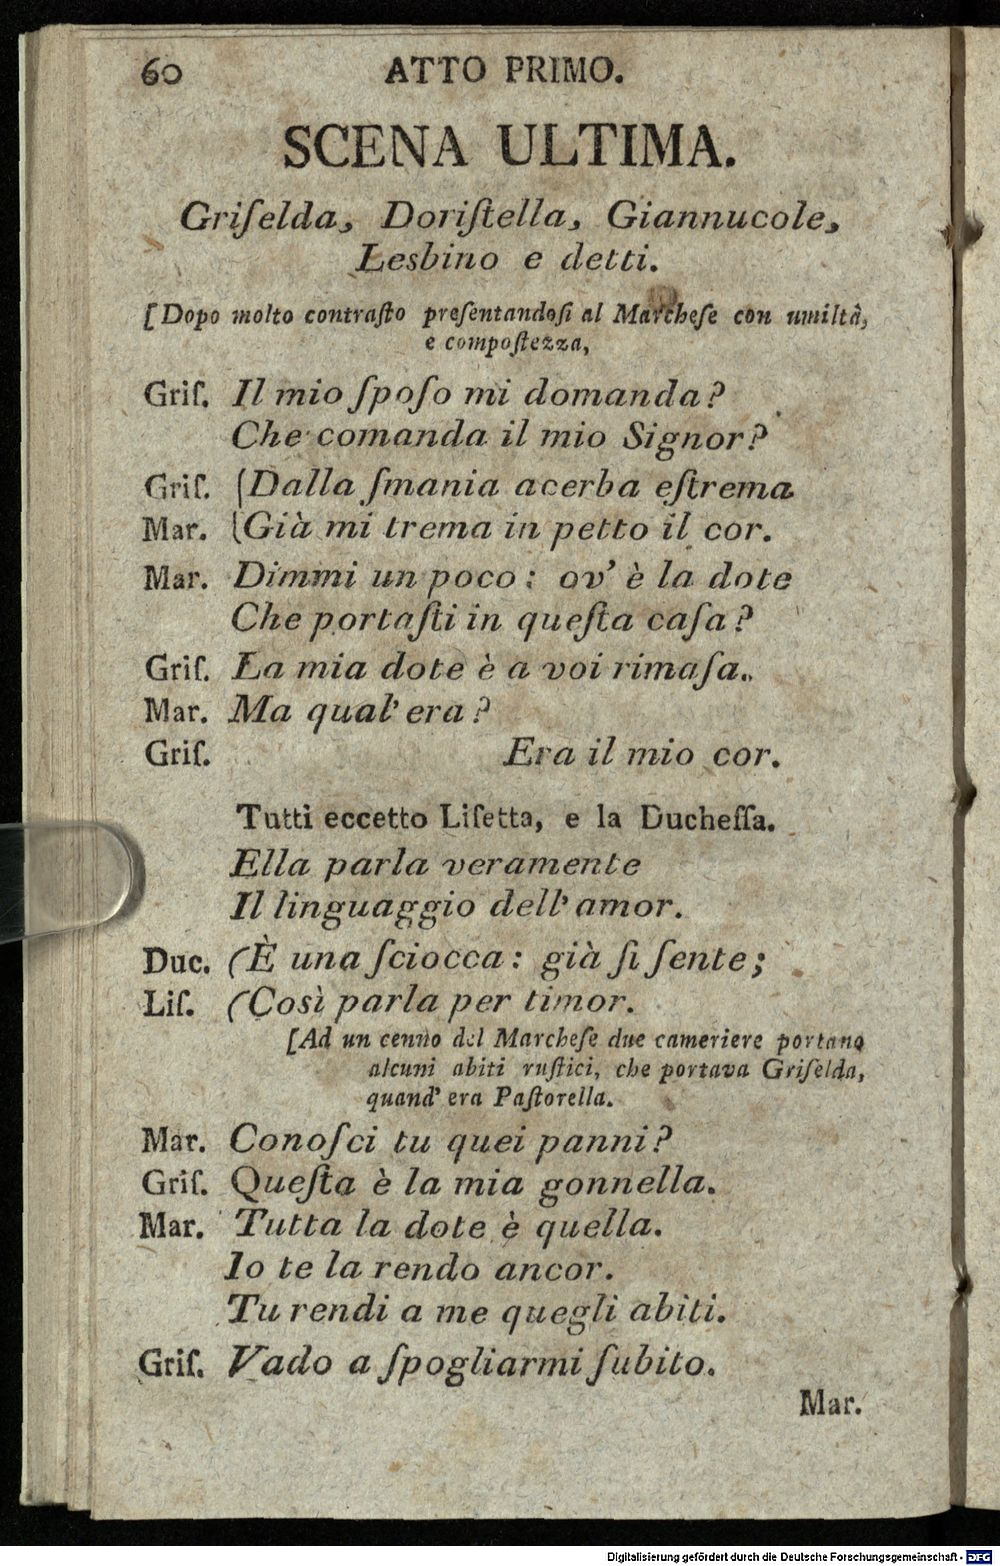 60 ATTO PRIMO.
SCENA ULTIMA.
Griſelda, Doriſtella, Giannucole,
Lesbino e detti.
[Dopo molto contraſto preſentandoſi al Marcheſe con umiltà,
e compoſtezza,
Griſ. Il mio ſpoſo mi domanda?
Che comanda il mio Signor?
Griſ. (Dalla ſmania acerba eſtrema
Mar. (Già mi trema in petto il cor.
Mar. Dimmi un poco: ov' è la dote
Che portaſti in queſta caſa?
Griſ. La mia dote è a voi rimaſa.
Mar. Ma qual' era?
Griſ. Era il mio cor.
Tutti eccetto Liſetta, e la Ducheſſa.
Ella parla veramente
Il linguaggio dell' amor.
Duc. (È una ſciocca: già ſi ſente;
Liſ. (Così parla per timor.
[Ad un cenno del Marcheſe due cameriere portano
alcuni abiti ruſtici, che portava Griſelda,
quand' era Paſtorella.
Mar. Conoſci tu quei panni?
Griſ. Queſta è la mia gonnella.
Mar. Tutta la dote è quella.
Io te la rendo ancor.
Tu rendi a me quegli abiti.
Griſ. Vado a ſpogliarmi ſubito.
Mar.
Digitalisierung gefördert durch die Deutsche Forschungsgemeinschaft - DFG